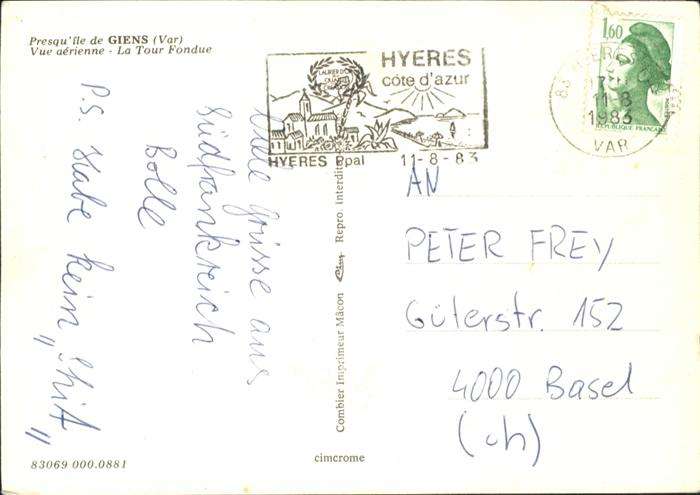 Presqu'île de GIENS (Var)
Vue aérienne - La Tour Fondue
HYERES
côte d'azur
HYERES Ppal 11-8-83
1,60
REPUBLIQUE FRANCAISE
83 HYERES
11-8
1983
VAR
grüsse aus
Südfrankreich
Bolle
P.S. Habe kein
„Shit"
Combier Imprimeur Mâcon Repro. Interdite
AN
PETER FREY
Güterstr. 152
4000 Basel
(ch)
83069 000.0881
cimcrome